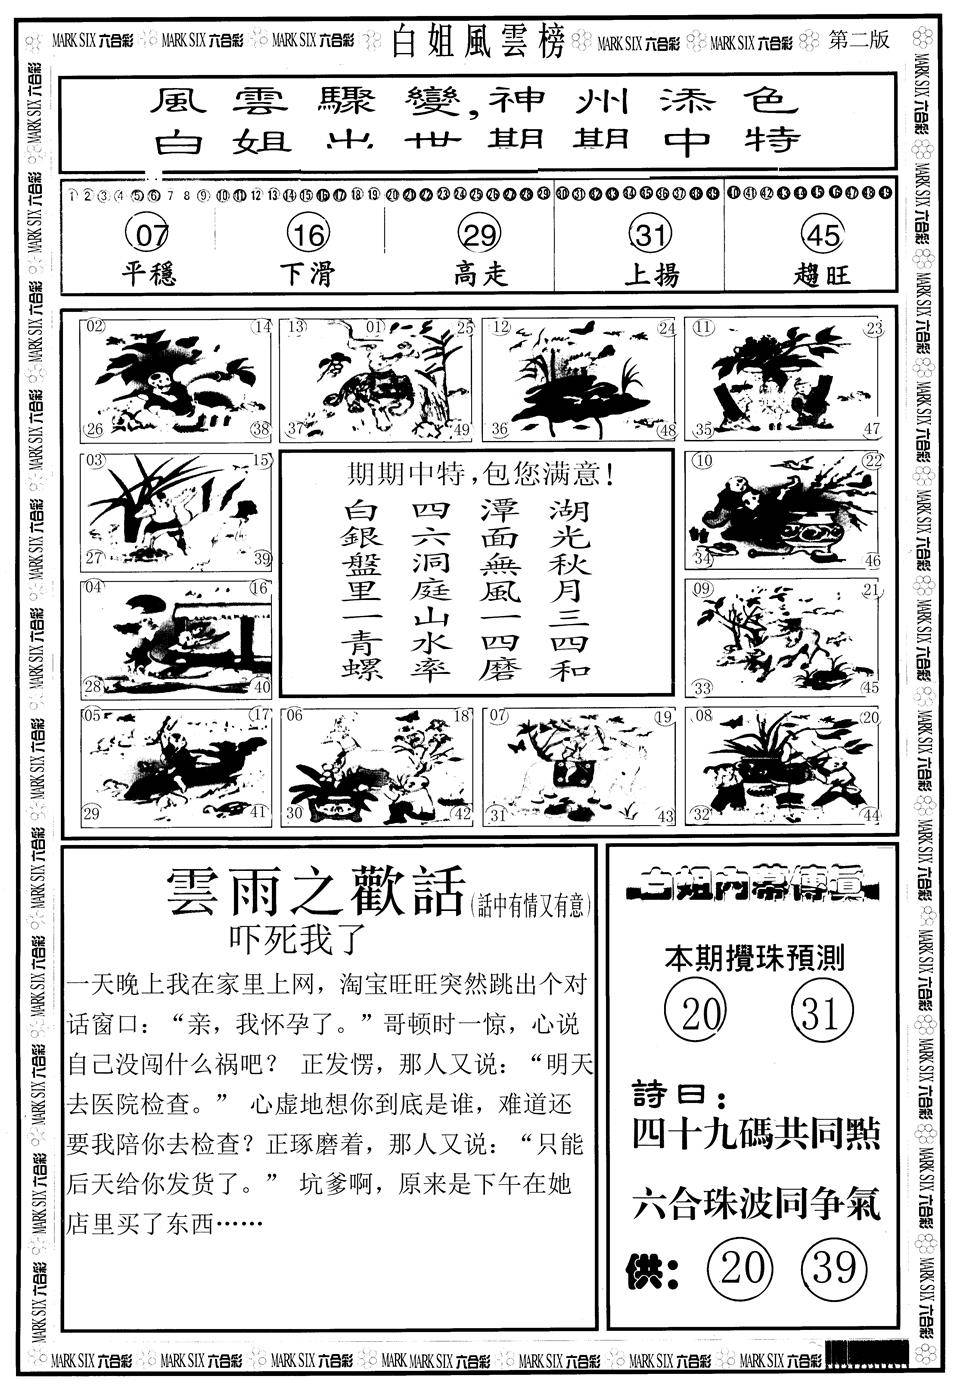 MARK SIX 六合彩 MARK SIX 六合彩 MARK SIX 六合彩 白姐風雲榜 MARK SIX 六合彩 MARK SIX 六合彩 第二版
風雲驟變,神州添色
白姐出世期期中特
1 2 3 4 5 6 7 8 9 10 11 12 13 14 15 16 17 18 19 20 21 22 23 24 25 26 27 28 29 30 31 32 33 34 35 36 37 38 39 40 41 42 43 44 45 46 47 48 49
07 16 29 31 45
平穩 下滑 高走 上揚 趨旺
02 14 13 01 25 12 24 11 23
26 38 37 49 36 48 35 47
03 15 10 22
27 39 34 46
04 16 09 21
28 40 33 45
期期中特,包您满意!
湖光秋月三四和
潭面無風一四磨
四六洞庭山水率
白銀盤里一青螺
05 17 06 18 07 19 08 20
29 41 30 42 31 43 32 44
雲雨之歡話(話中有情又有意)
吓死我了
一天晚上我在家里上网，淘宝旺旺突然跳出个对
话窗口：“亲，我怀孕了。”哥顿时一惊，心说
自己没闯什么祸吧？ 正发愣，那人又说：“明天
去医院检查。” 心虚地想你到底是谁，难道还
要我陪你去检查？正琢磨着，那人又说：“只能
后天给你发货了。” 坑爹啊，原来是下午在她
店里买了东西……
白姐内幕傳真
本期攪珠預測
20 31
詩曰：
四十九碼共同點
六合珠波同争氣
供： 20 39
MARK SIX 六合彩 MARK SIX 六合彩 MARK SIX 六合彩 MARK MARK SIX 六合彩 MARK SIX 六合彩 MARK SIX 六合彩 MARK SIX 六合彩